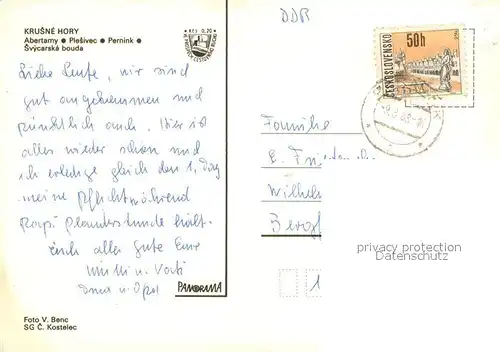 KRUŠNÉ HORY
Abertamy ● Plešivec ● Pernink ●
Švýcarská bouda
Kčs 0,20
Liebe Leute, wir sind
gut angekommen und
pünktlich auch. Hier ist
alles wieder schön und
ich erledige gleich den 1. Tag
meine Pflicht während
Rapi Plauderstunde hält.
Euch alles Gute Eure
Mutti u. Vati
Oma u. Opa
PANORAMA
Foto V. Benc
SG Č. Kostelec
DDR
ČESKOSLOVENSKO
50h
Familie
E. Fr
Wilhel
Bergf
1
privacy protection
Datenschutz